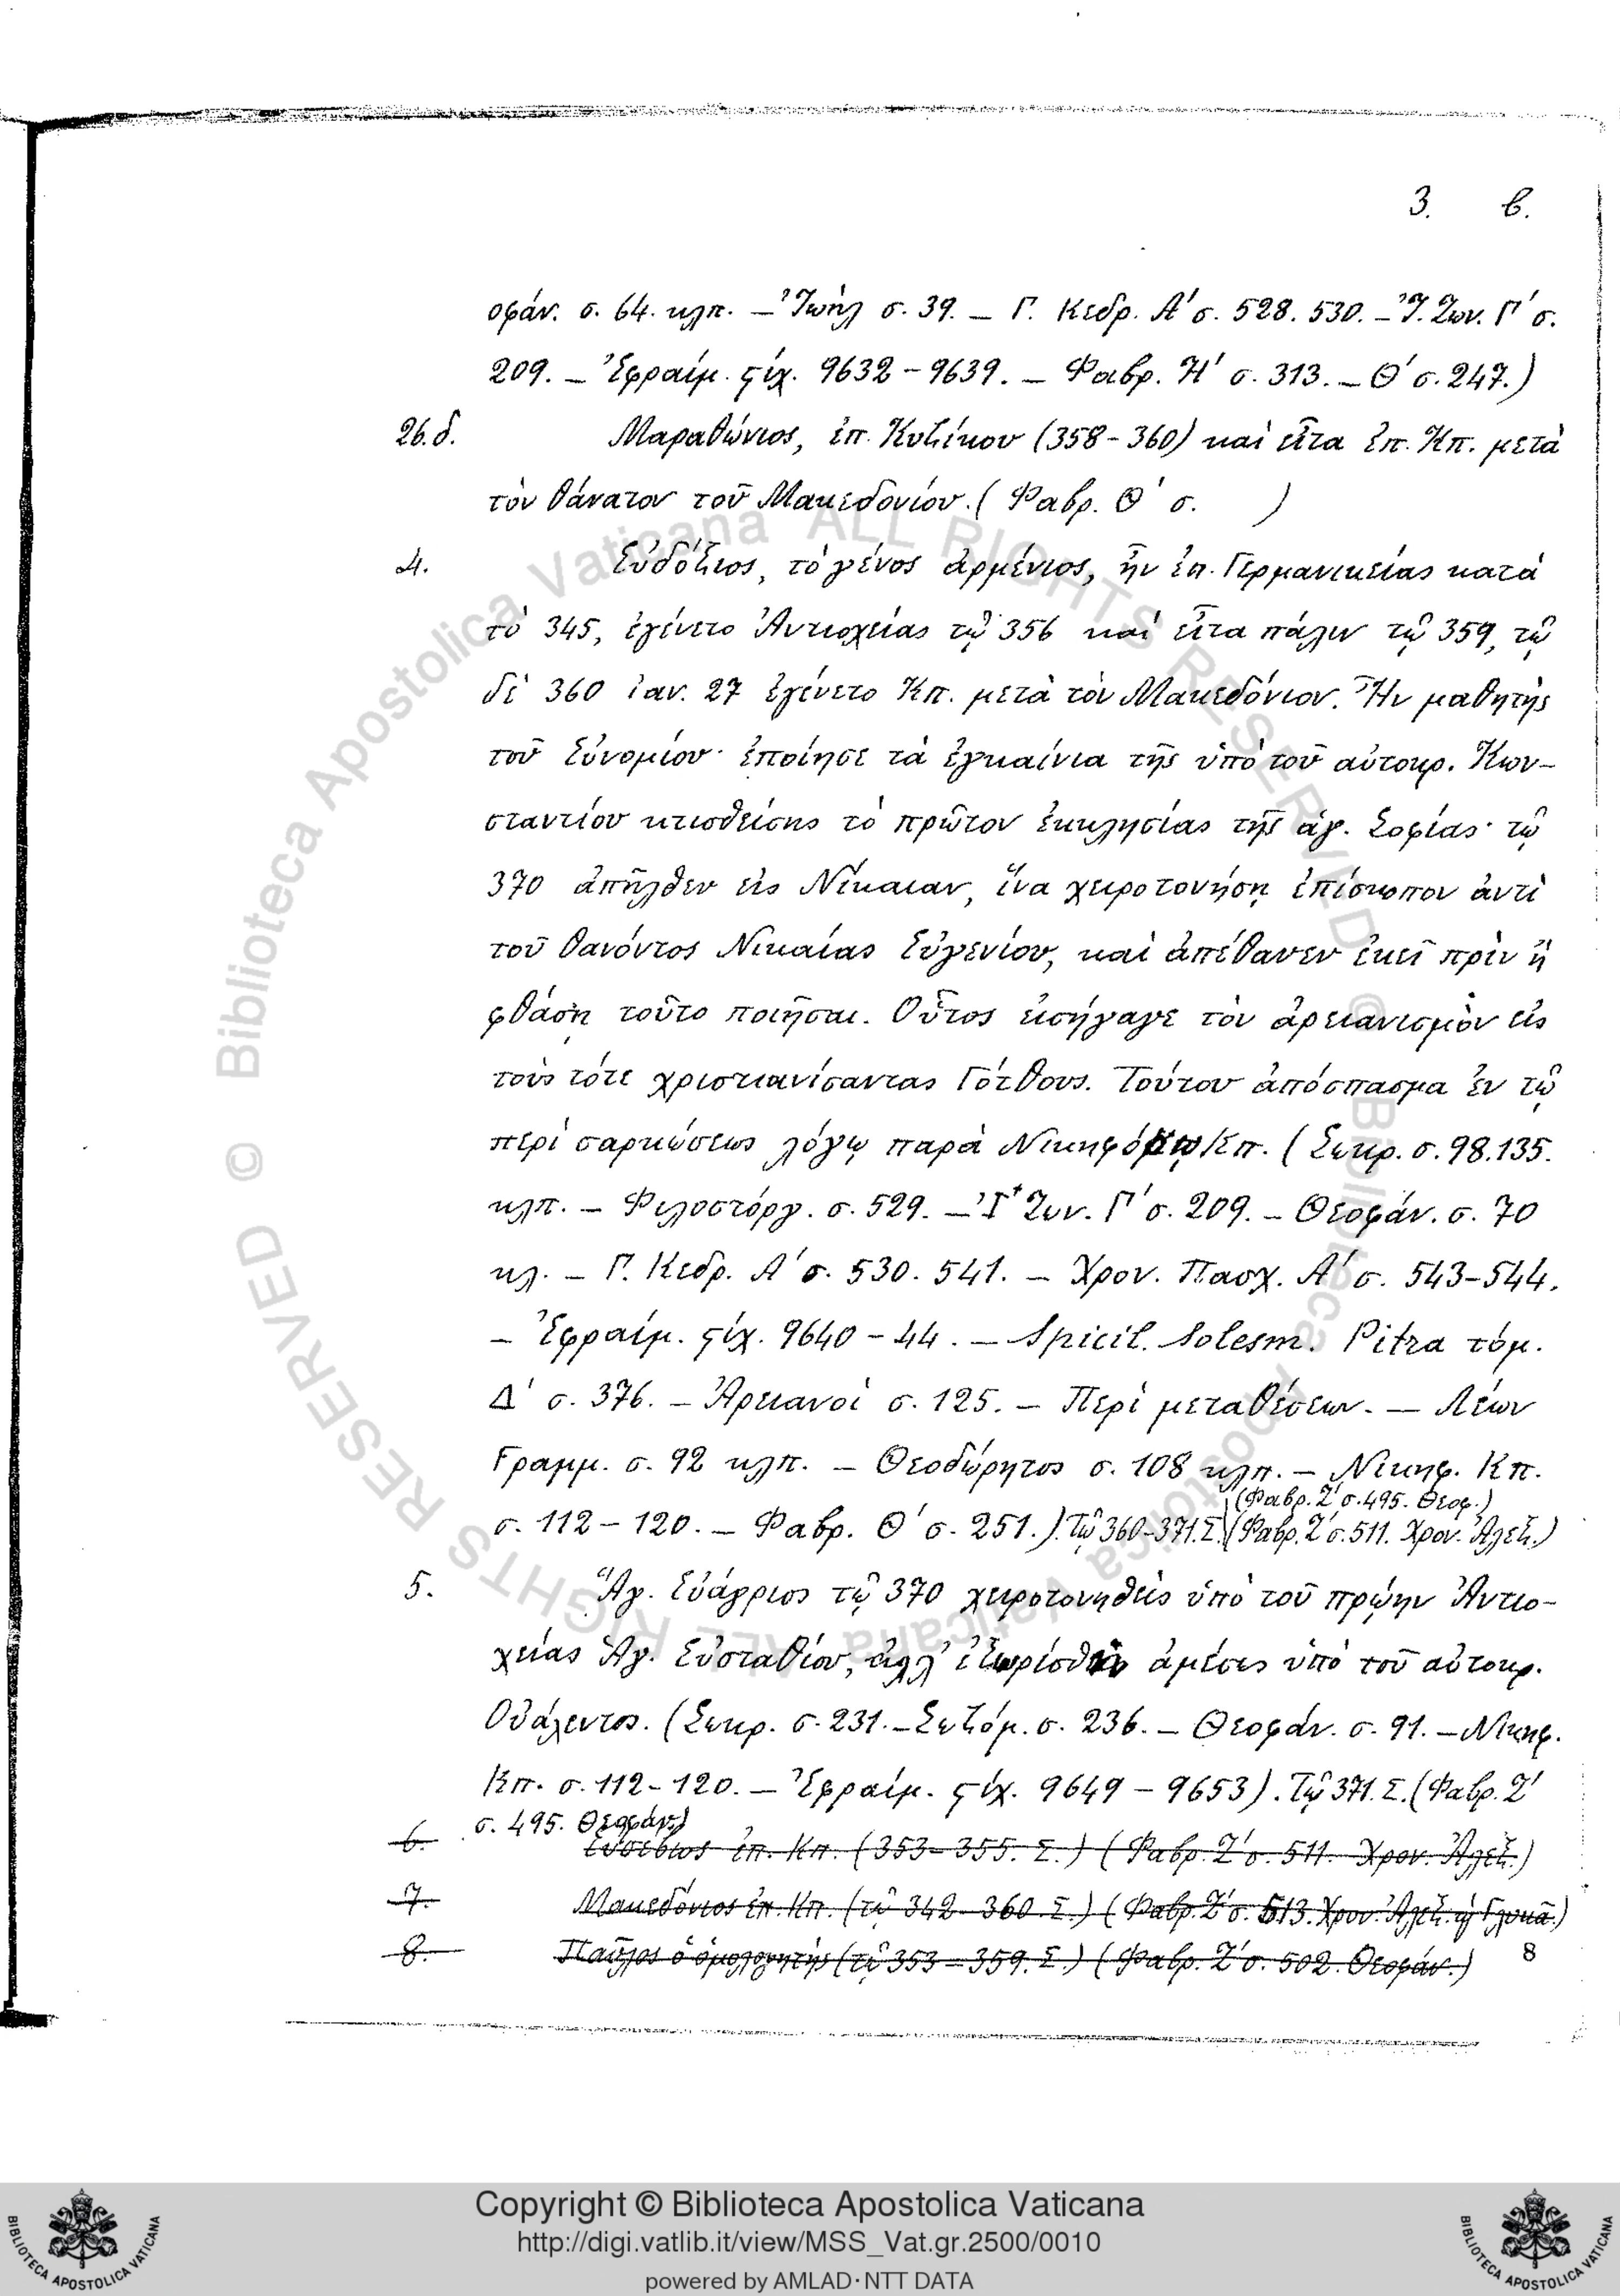 3. β.
οφάν. σ. 64. κλπ. – Ἰωὴλ σ. 39. – Γ. Κεδρ. Α΄ σ. 528. 530. – Ἰ. Ζων. Γ΄ σ.
209. – Ἐφραίμ. ςίχ. 9632 – 9639. – Φαβρ. Η΄ σ. 313. – Θ΄ σ. 247.)
26.δ. Μαραθώνιος, ἐπ. Κυζίκου (358 – 360) καὶ εἶτα ἐπ. Κπ. μετὰ
τὸν θάνατον τοῦ Μακεδονίου. ( Φαβρ. Θ΄ σ. )
4. Εὐδόξιος, τὸ γένος ἀρμένιος, ἦν ἐπ. Γερμανικείας κατὰ
τὸ 345, ἐγένετο Ἀντιοχείας τῷ 356 καὶ εἶτα πάλιν τῷ 359, τῷ
δὲ 360 ἰαν. 27 ἐγένετο Κπ. μετὰ τὸν Μακεδόνιον. Ἦν μαθητὴς
τοῦ Εὐνομίου· ἐποίησε τὰ ἐγκαίνια τῆς ὑπὸ τοῦ αὐτοκρ. Κων–
σταντίου κτισθείσης τὸ πρῶτον ἐκκλησίας τῆς ἁγ. Σοφίας· τῷ
370 ἀπῆλθεν εἰς Νίκαιαν, ἵνα χειροτονήσῃ ἐπίσκοπον ἀντὶ
τοῦ θανόντος Νικαίας Εὐγενίου, καὶ ἀπέθανεν ἐκεῖ πρὶν ἢ
φθάσῃ τοῦτο ποιῆσαι. Οὗτος εἰσήγαγε τὸν ἀρειανισμὸν εἰς
τοὺς τότε χριστιανίσαντας Γότθους. Τούτου ἀπόσπασμα ἐν τῷ
περὶ σαρκώσεως λόγῳ παρὰ Νικηφόρῳ Κπ. ( Σωκρ. σ. 98.135.
κλπ. – Φιλοστόργ. σ. 529. – Ἰ Ζων. Γ΄ σ. 209. – Θεοφάν. σ. 70
κλ. – Γ. Κεδρ. Α΄ σ. 530. 541. – Χρον. Πασχ. Α΄ σ. 543–544.
– Ἐφραίμ. ςίχ. 9640 – 44. – Spicil. Solesm. Pitra τόμ.
Δ΄ σ. 376. – Ἀρειανοὶ σ. 125. – Περὶ μεταθέσεων. – Λέων
Γραμμ. σ. 92 κλπ. – Θεοδώρητος σ. 108 κλπ. – Νικηφ. Κπ.
(Φαβρ. Ζ΄ σ. 495. Θεοφ.)
σ. 112 – 120. – Φαβρ. Θ΄ σ. 251.) Τῷ 360–371. Σ. (Φαβρ. Ζ΄ σ. 511. Χρον. Ἀλεξ.)
5. Ἅγ. Εὐάγριος τῷ 370 χειροτονηθεὶς ὑπὸ τοῦ πρῴην Ἀντιο–
χείας Ἁγ. Εὐσταθίου, ἀλλ' ἐξωρίσθη ἀμέσως ὑπὸ τοῦ αὐτοκρ.
Οὐάλεντος. (Σωκρ. σ. 231. – Σωζόμ. σ. 236. – Θεοφάν. σ. 91. – Νικηφ.
Κπ. σ. 112 – 120. – Ἐφραίμ. ςίχ. 9649 – 9653). Τῷ 371. Σ. (Φαβρ. Ζ΄
σ. 495. Θεοφάν.)
6. Εὐσέβιος ἐπ. Κπ. (353 – 355. Σ.) (Φαβρ. Ζ΄ σ. 511. Χρον. Ἀλεξ.)
7. Μακεδόνιος ἐπ. Κπ. (τῷ 342 – 360. Σ.) (Φαβρ. Ζ΄ σ. 513. Χρον. Ἀλεξ. ϗ Γλυκᾶ.)
8. Παῦλος ὁ ὁμολογητής (τῷ 353 – 359. Σ.) (Φαβρ. Ζ΄ σ. 502. Θεοφάν.) 8
© Biblioteca Apostolica Vaticana ALL RIGHTS RESERVED © Biblioteca Apostolica Vaticana ALL RIGHTS RESERVED
Copyright © Biblioteca Apostolica Vaticana
http://digi.vatlib.it/view/MSS_Vat.gr.2500/0010
powered by AMLAD·NTT DATA
BIBLIOTECA APOSTOLICA VATICANA
BIBLIOTECA APOSTOLICA VATICANA